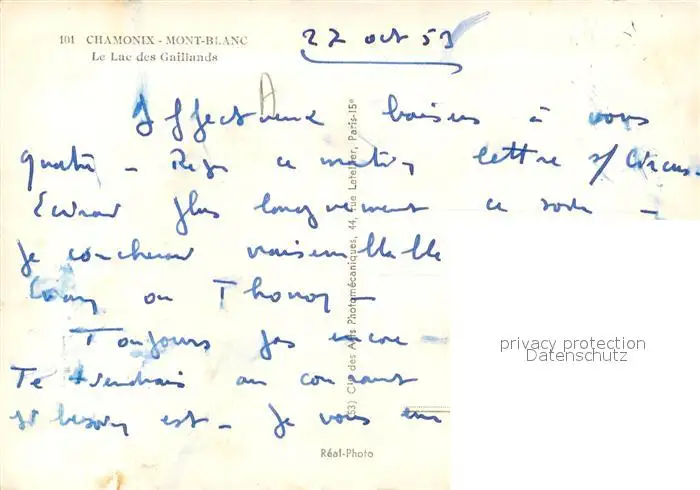 101 CHAMONIX - MONT-BLANC
Le Lac des Gaillands
22 oct 53
A
Affectueux baisers à vous
quatre - Reçu ce matin, lettre s/
Ecrirai plus longuement ce soir -
je coucherai vraisemblable
Evian ou Thonon -
Toujours pas encore -
Te tiendrais au courant
si besoin est - Je vous em
(53) Cie des Arts Photomécaniques, 44, rue Letellier, Paris-15e
Réal-Photo
privacy protection
Datenschutz